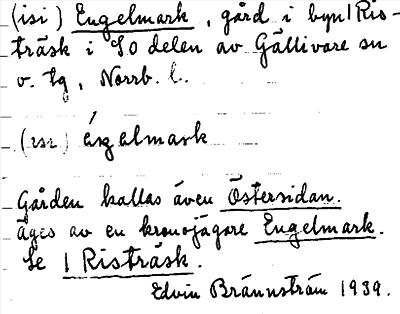 (isi) Engelmark, gård i byn 1 Ris-
träsk i SO delen av Gällivare sn
o. tg, Norrb. l..
(isi) éŋelmark
Gården kallas även Östersidan.
Äges av en kronojägare Engelmark.
Se 1 Risträsk.
Edvin Brännström 1939.